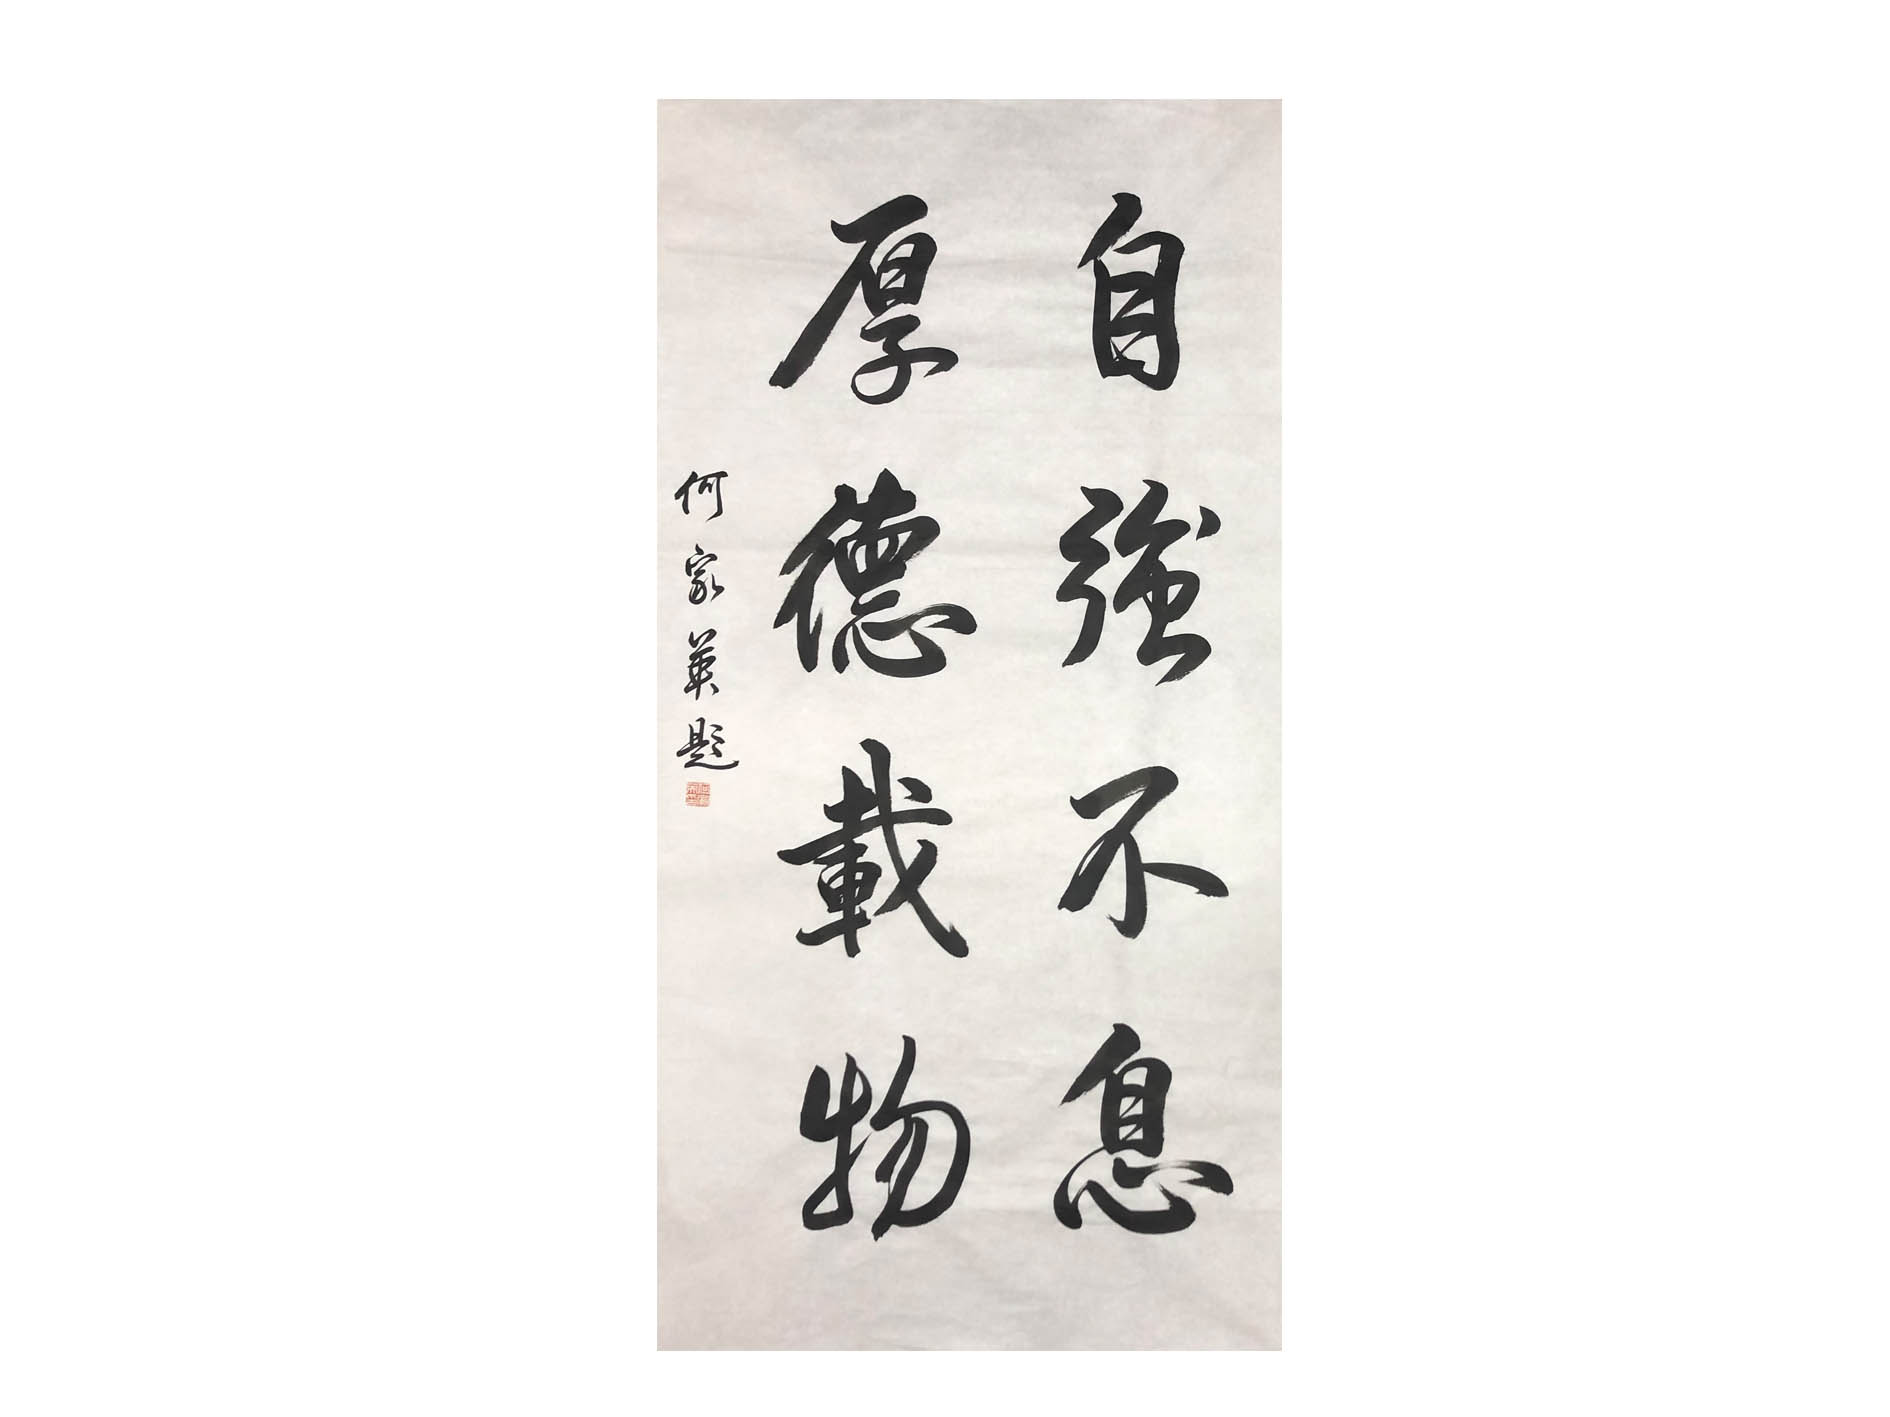 自強不息
厚德載物
何家英题